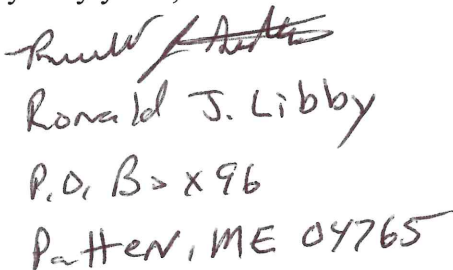 Ronald J. Libby
P.O. Box 96
Patten, ME 04765